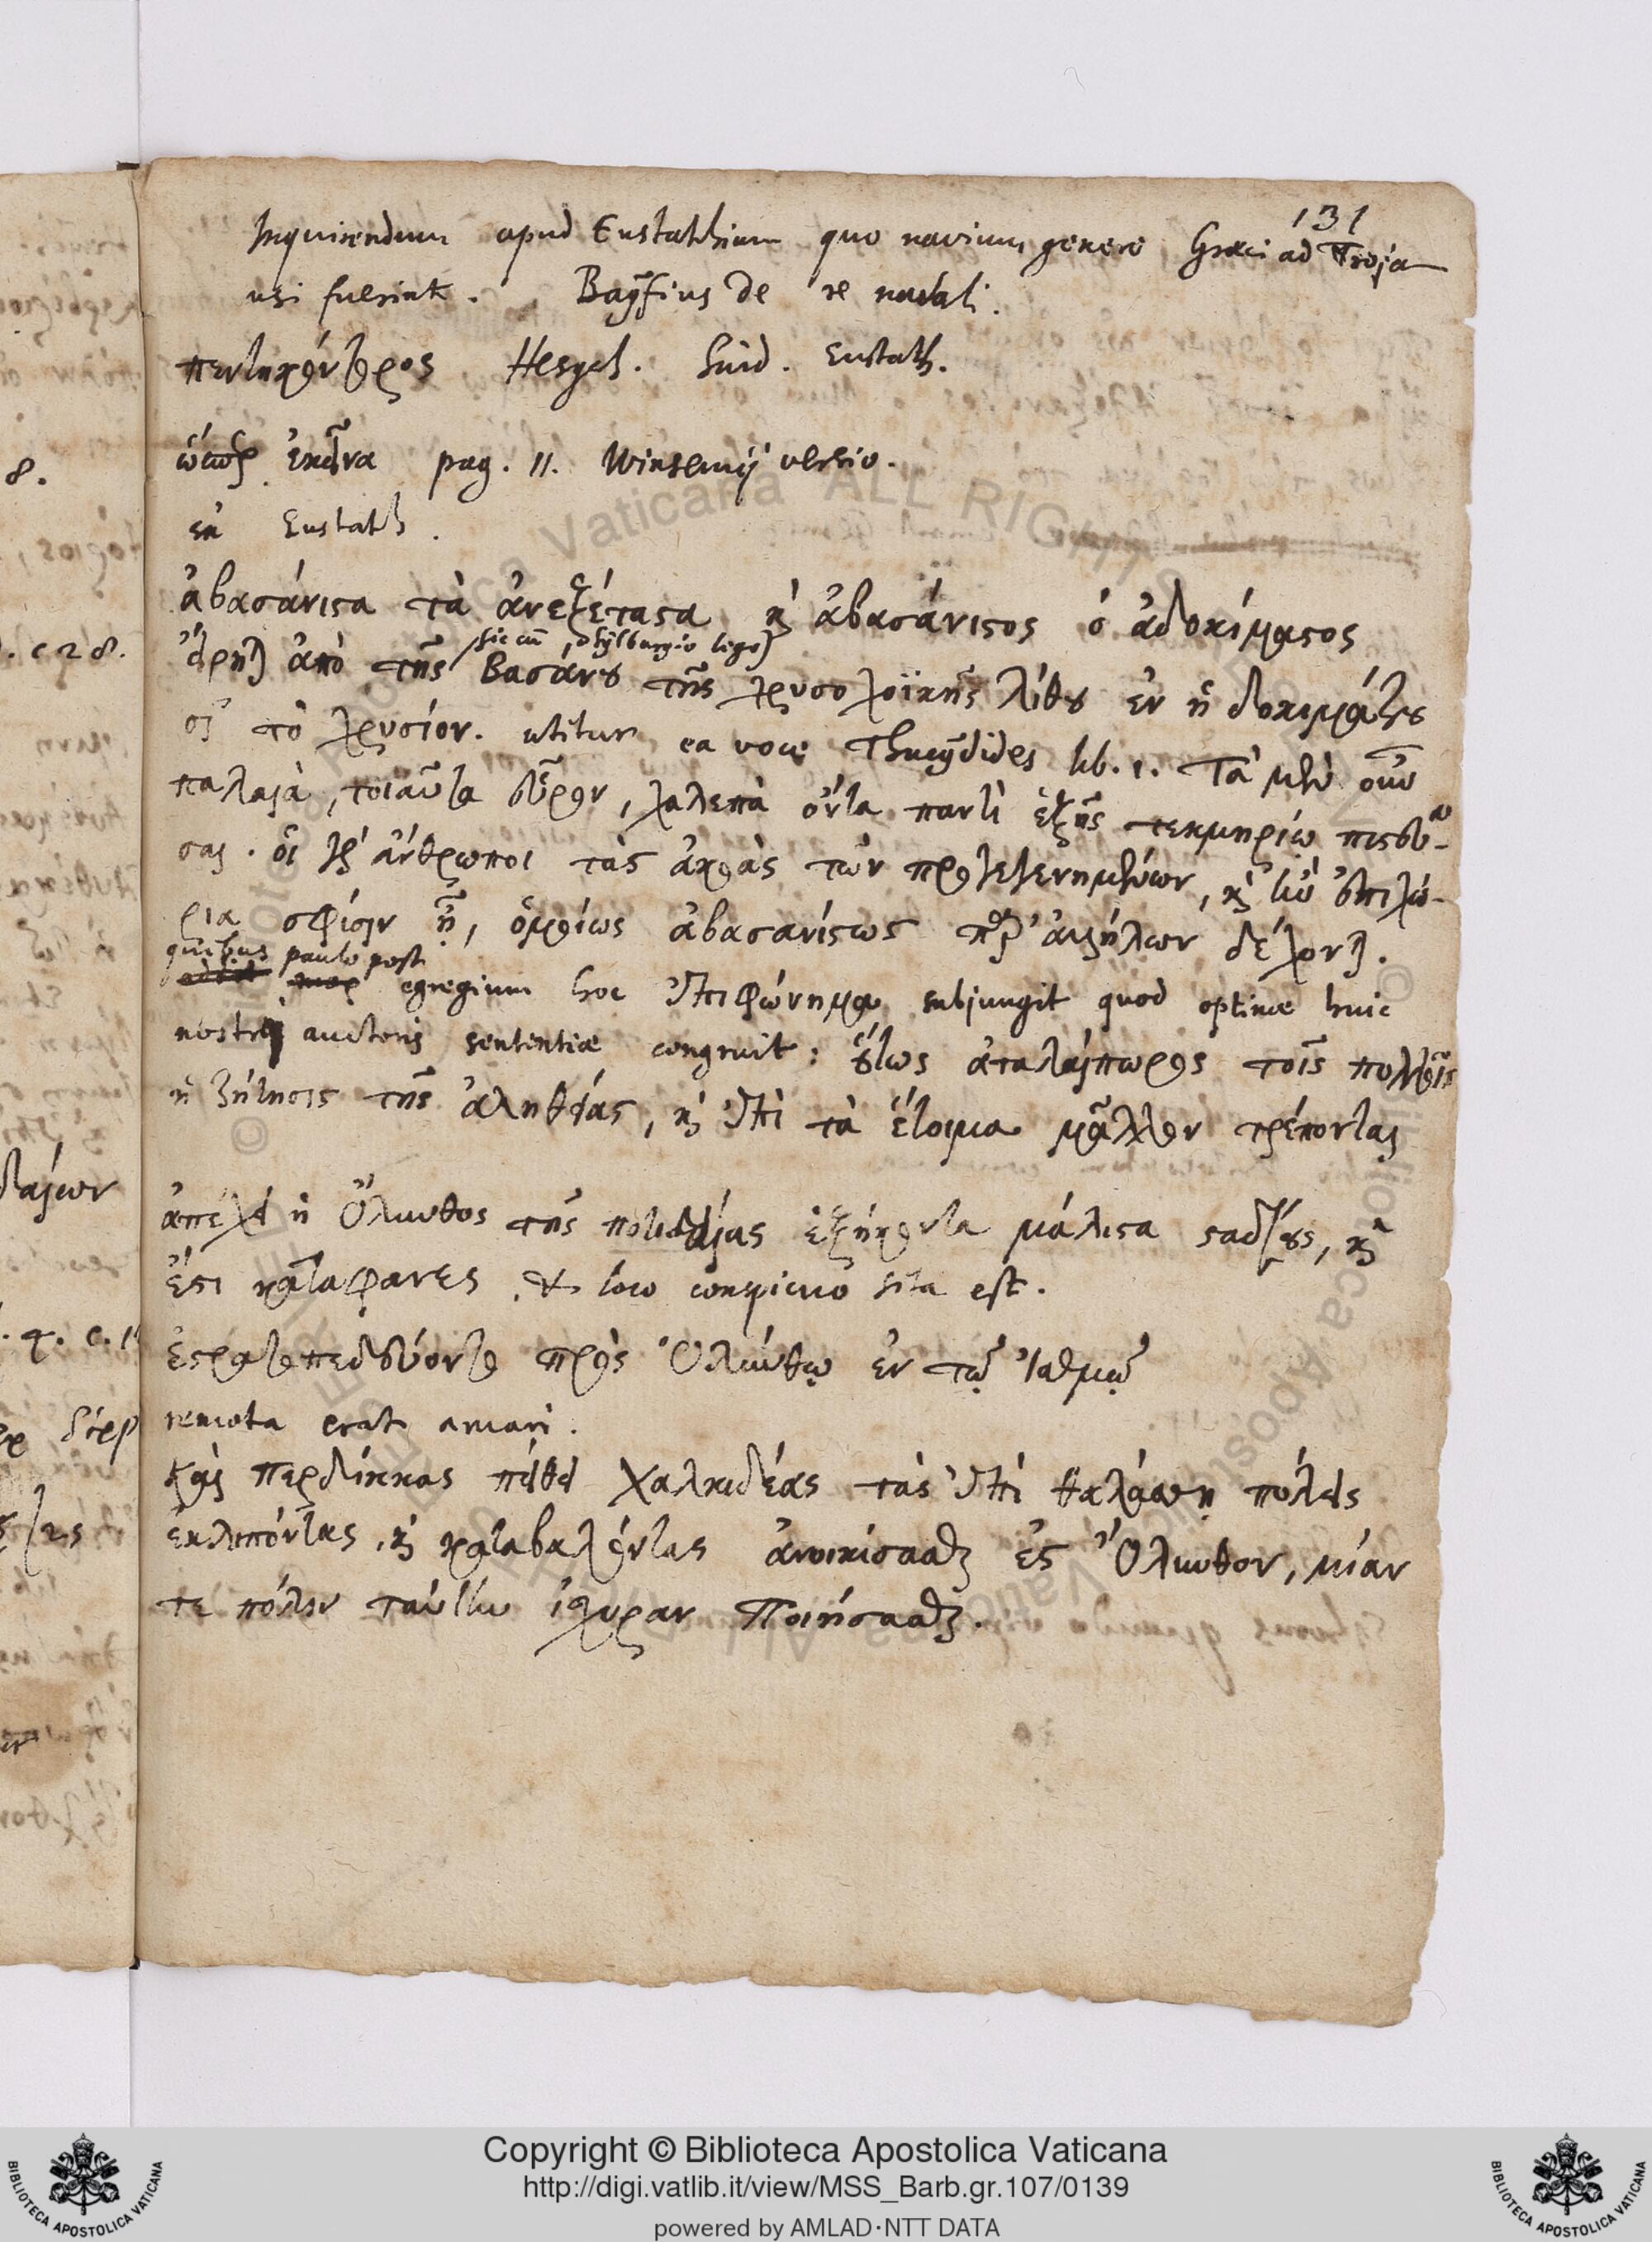 131
Inquirendum apud Eustathium quo navium genere Graeci ad Troja
usi fuerint. Bayfius de re navali.
πεντηκόντορος Hesych. Suid. Eustath.
ὥσπερ ἐκεῖνα pag. 11. Winsemij versio.
ἐκ Eustath.
ἀβασάνιϛα τὰ ἀνεξέταϛα, κὶ ἀβασάνιϛος ὁ ἀδοκίμαϛος
εἴρηται ἀπὸ τῆς (sic cum Sylburgio lego) Βασάνου τῆς χρυσοχοϊκῆς λίθου ἐν ᾗ δοκιμάζεται
τὸ χρυσίον. utitur ea voce Thucydides lib. 1. Τὰ μὲν οὖν
παλαιὰ, τοιαῦτα εὗρον, χαλεπὰ ὄντα παντὶ ἑξῆς τεκμηρίῳ πιϛεῦ-
σαι. οἱ γὰρ ἄνθρωποι τὰς ἀκοὰς τῶν προγεγενημένων, κὶ ἢν ἐπιχώ-
ρια σφίσιν ᾖ, ὁμοίως ἀβασανίϛως παρ' ἀλλήλων δέχονται.
quibus paulo post
egregium hoc ἐπιφώνημα subjungit quod optime huic
nostri auctoris sententiae congruit: οὕτως ἀταλαίπωρος τοῖς πολλοῖς
ἡ ζήτησις τῆς ἀληθείας, κὶ ἐπὶ τὰ ἕτοιμα μᾶλλον τρέπονται
ἀπέχει ἡ Ὄλυνθος τῆς ποτιδαίας ἑξήκοντα μάλιϛα ϛαδίους, κὶ
ἔϛι καταφανες. & loco conspicuo sita est.
ἐϛρατοπεδεύοντο πρὸς Ὀλύνθῳ ἐν τῷ Ἰσθμῷ
remota erat a mari.
Καὶ Περδίκκας πείθει Χαλκιδέας τὰς ἐπὶ θαλάσσῃ πόλεις
ἐκλιπόντας, κὶ καταβαλόντας ἀνοικίσασθαι ἐς Ὄλυνθον, μίαν
τε πόλιν ταύτην ἰσχυραν Ποιήσασθαι.
8.
Copyright © Biblioteca Apostolica Vaticana
http://digi.vatlib.it/view/MSS_Barb.gr.107/0139
powered by AMLAD·NTT DATA
BIBLIOTECA APOSTOLICA VATICANA
BIBLIOTECA APOSTOLICA VATICANA